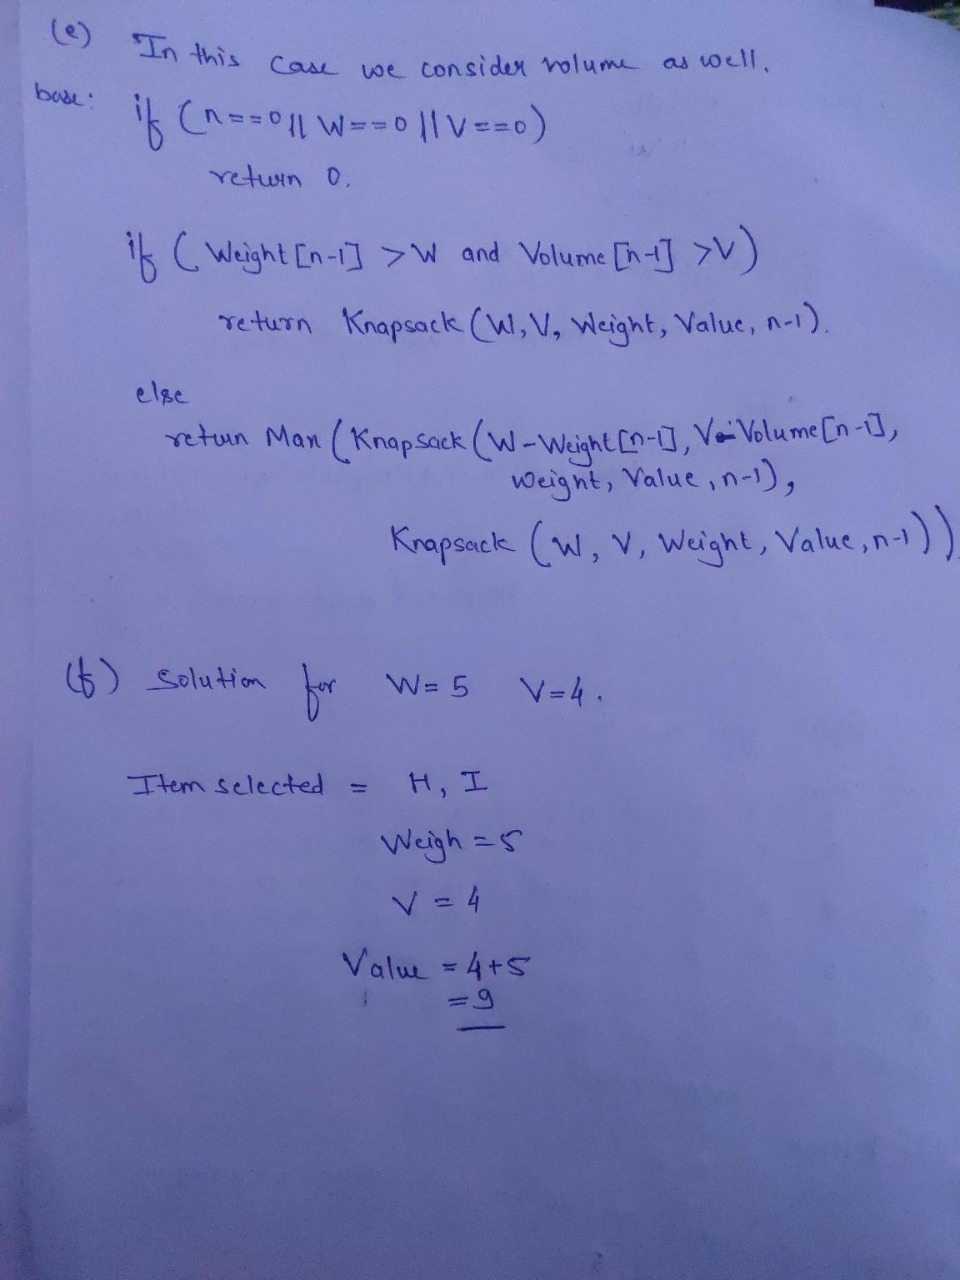 (e) In this case we consider volume as well.
base: if (n==0 || W==0 || V==0)
return 0.
if ( Weight[n-1] > W and Volume [n-1] >V)
return Knapsack (W, V, Weight, Value, n-1).
else
return Max (Knapsack (W-Weight[n-1], V-Volume[n-1],
Weight, Value, n-1),
Knapsack (W, V, Weight, Value, n-1))
(f) Solution for W=5 V=4.
Item selected = H, I
Weigh =5
V = 4
Value =4+5
=9